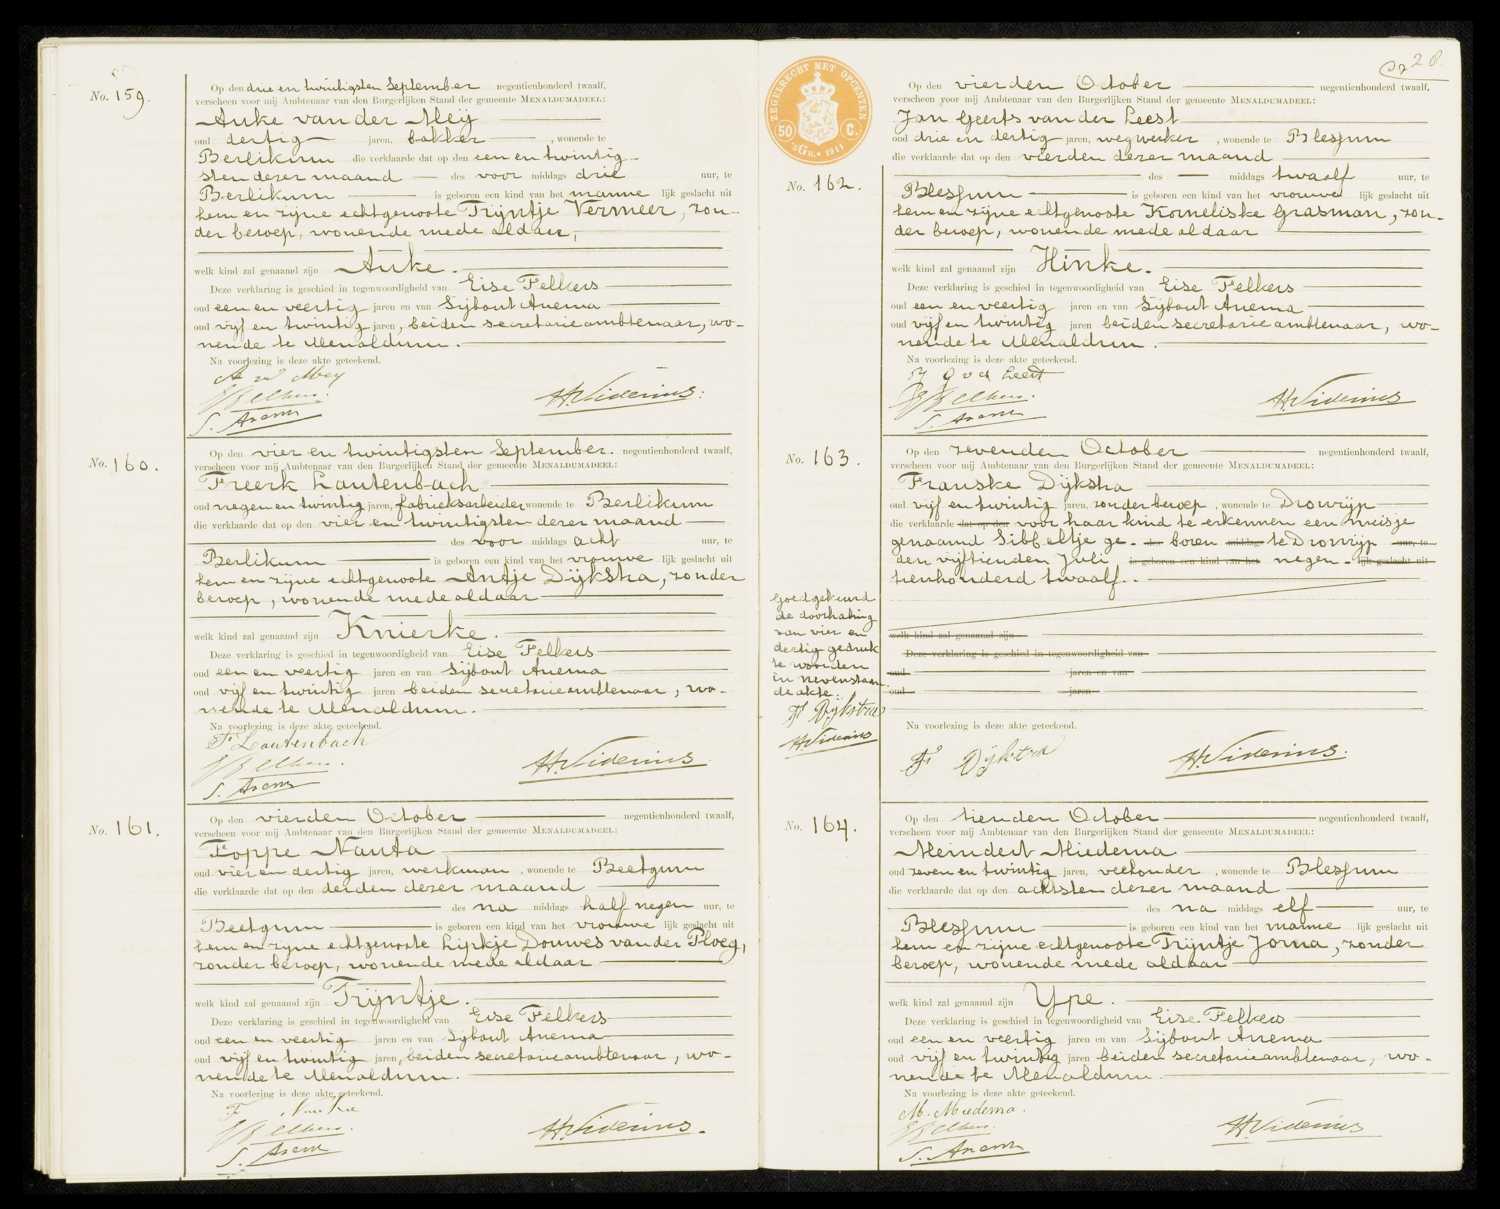 No. 159.
Op den drie en twintigsten September negentienhonderd twaalf,
verscheen voor mij Ambtenaar van den Burgerlijken Stand der gemeente MENALDUMADEEL:
Auke van der Meij
oud dertig jaren, bakker, wonende te
Berlikum die verklaarde dat op den een en twintig-
sten dezer maand des voor middags drie uur, te
Berlikum is geboren een kind van het manne lijk geslacht uit
hem en zijne echtgenoote Trijntje Vermeer, zon-
der beroep, wonende mede aldaar,
welk kind zal genaamd zijn Auke.
Deze verklaring is geschied in tegenwoordigheid van Eise Felkers
oud een en veertig jaren en van Sijbout Anema
oud vijf en twintig jaren, beiden secretarieambtenaar, wo-
nende te Menaldum.
Na voorlezing is deze akte geteekend.
A vd Meij
S. Anema
H. Siderius.
No. 160.
Op den vier en twintigsten September. negentienhonderd twaalf,
verscheen voor mij Ambtenaar van den Burgerlijken Stand der gemeente MENALDUMADEEL:
Freerk Lautenbach
oud negen en twintig jaren, fabrieksarbeider wonende te Berlikum
die verklaarde dat op den vier en twintigsten dezer maand
des voor middags acht uur, te
Berlikum is geboren een kind van het vrouwe lijk geslacht uit
hem en zijne echtgenoote Antje Dijkstra, zonder
beroep, wonende mede aldaar
welk kind zal genaamd zijn Knierke.
Deze verklaring is geschied in tegenwoordigheid van Eise Felkers
oud een en veertig jaren en van Sijbout Anema
oud vijf en twintig jaren beiden secretarieambtenaar, wo-
nende te Menaldum.
Na voorlezing is deze akte geteekend.
F. Lautenbach
S. Anema
H. Siderius
No. 161.
Op den vierden October negentienhonderd twaalf,
verscheen voor mij Ambtenaar van den Burgerlijken Stand der gemeente MENALDUMADEEL:
Foppe Nauta
oud vier en dertig jaren, werkman, wonende te Beetgum
die verklaarde dat op den derden dezer maand
des na middags half negen uur, te
Beetgum is geboren een kind van het vrouwe lijk geslacht uit
hem en zijne echtgenoote Lijkje Douwes van der Ploeg,
zonder beroep, wonende mede aldaar
welk kind zal genaamd zijn Trijntje.
Deze verklaring is geschied in tegenwoordigheid van Eise Felkers
oud een en veertig jaren en van Sijbout Anema
oud vijf en twintig jaren, beiden secretarieambtenaar, wo-
nende te Menaldum.
Na voorlezing is deze akte geteekend.
F Nauta
S. Anema
H. Siderius.
28.
ZEGELRECHT MET OPCENTEN
50 C.
'sGR. 1911
No. 162.
Op den vierden October negentienhonderd twaalf,
verscheen voor mij Ambtenaar van den Burgerlijken Stand der gemeente MENALDUMADEEL:
Jan Geerts van der Leest
oud drie en dertig jaren, wegwerker, wonende te Blessum
die verklaarde dat op den vierden dezer maand
des — middags twaalf uur, te
Blessum is geboren een kind van het vrouwe lijk geslacht uit
hem en zijne echtgenoote Korneliske Grasman, zon-
der beroep, wonende mede aldaar
welk kind zal genaamd zijn Hinke.
Deze verklaring is geschied in tegenwoordigheid van Eise Felkers
oud een en veertig jaren en van Sijbout Anema
oud vijf en twintig jaren beiden secretarieambtenaar, wo-
nende te Menaldum.
Na voorlezing is deze akte geteekend.
J G v d Leest
S. Anema
H. Siderius
No. 163.
Op den zevenden October negentienhonderd twaalf,
verscheen voor mij Ambtenaar van den Burgerlijken Stand der gemeente MENALDUMADEEL:
Franske Dijkstra
oud vijf en twintig jaren, zonder beroep, wonende te Dronrijp
die verklaarde dat op den voor haar kind te erkennen een meisje
genaamd Sibbeltje ge- des boren middags te Dronrijp uur, te
den vijftienden Juli is geboren een kind van het negen- lijk geslacht uit
tienhonderd twaalf.
welk kind zal genaamd zijn
Deze verklaring is geschied in tegenwoordigheid van
oud jaren en van
oud jaren
Na voorlezing is deze akte geteekend.
Goedgekeurd
de doorhaling
van vier en
dertig gedruk-
te woorden
in nevenstaan-
de akte.
Fr Dijkstra
H. Siderius
Fr Dijkstra
H. Siderius.
No. 164.
Op den tienden October negentienhonderd twaalf,
verscheen voor mij Ambtenaar van den Burgerlijken Stand der gemeente MENALDUMADEEL:
Meindert Miedema
oud zeven en twintig jaren, veehouder, wonende te Blessum
die verklaarde dat op den achtsten dezer maand
des na middags elf uur, te
Blessum is geboren een kind van het manne lijk geslacht uit
hem en zijne echtgenoote Trijntje Jorna, zonder
beroep, wonende mede aldaar
welk kind zal genaamd zijn Ype.
Deze verklaring is geschied in tegenwoordigheid van Eise Felkers
oud een en veertig jaren en van Sijbout Anema
oud vijf en twintig jaren beiden secretarieambtenaar, wo-
nende te Menaldum.
Na voorlezing is deze akte geteekend.
M. Miedema.
S. Anema
H. Siderius